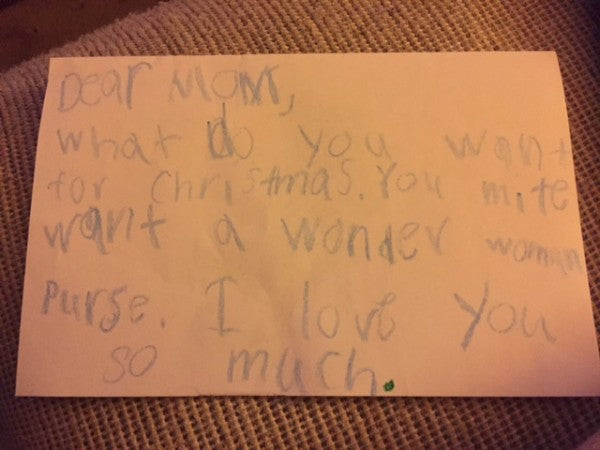 Dear Mom,
what do you want
for Christmas. You mite
want a wonder woman
Purse. I love you
so much.